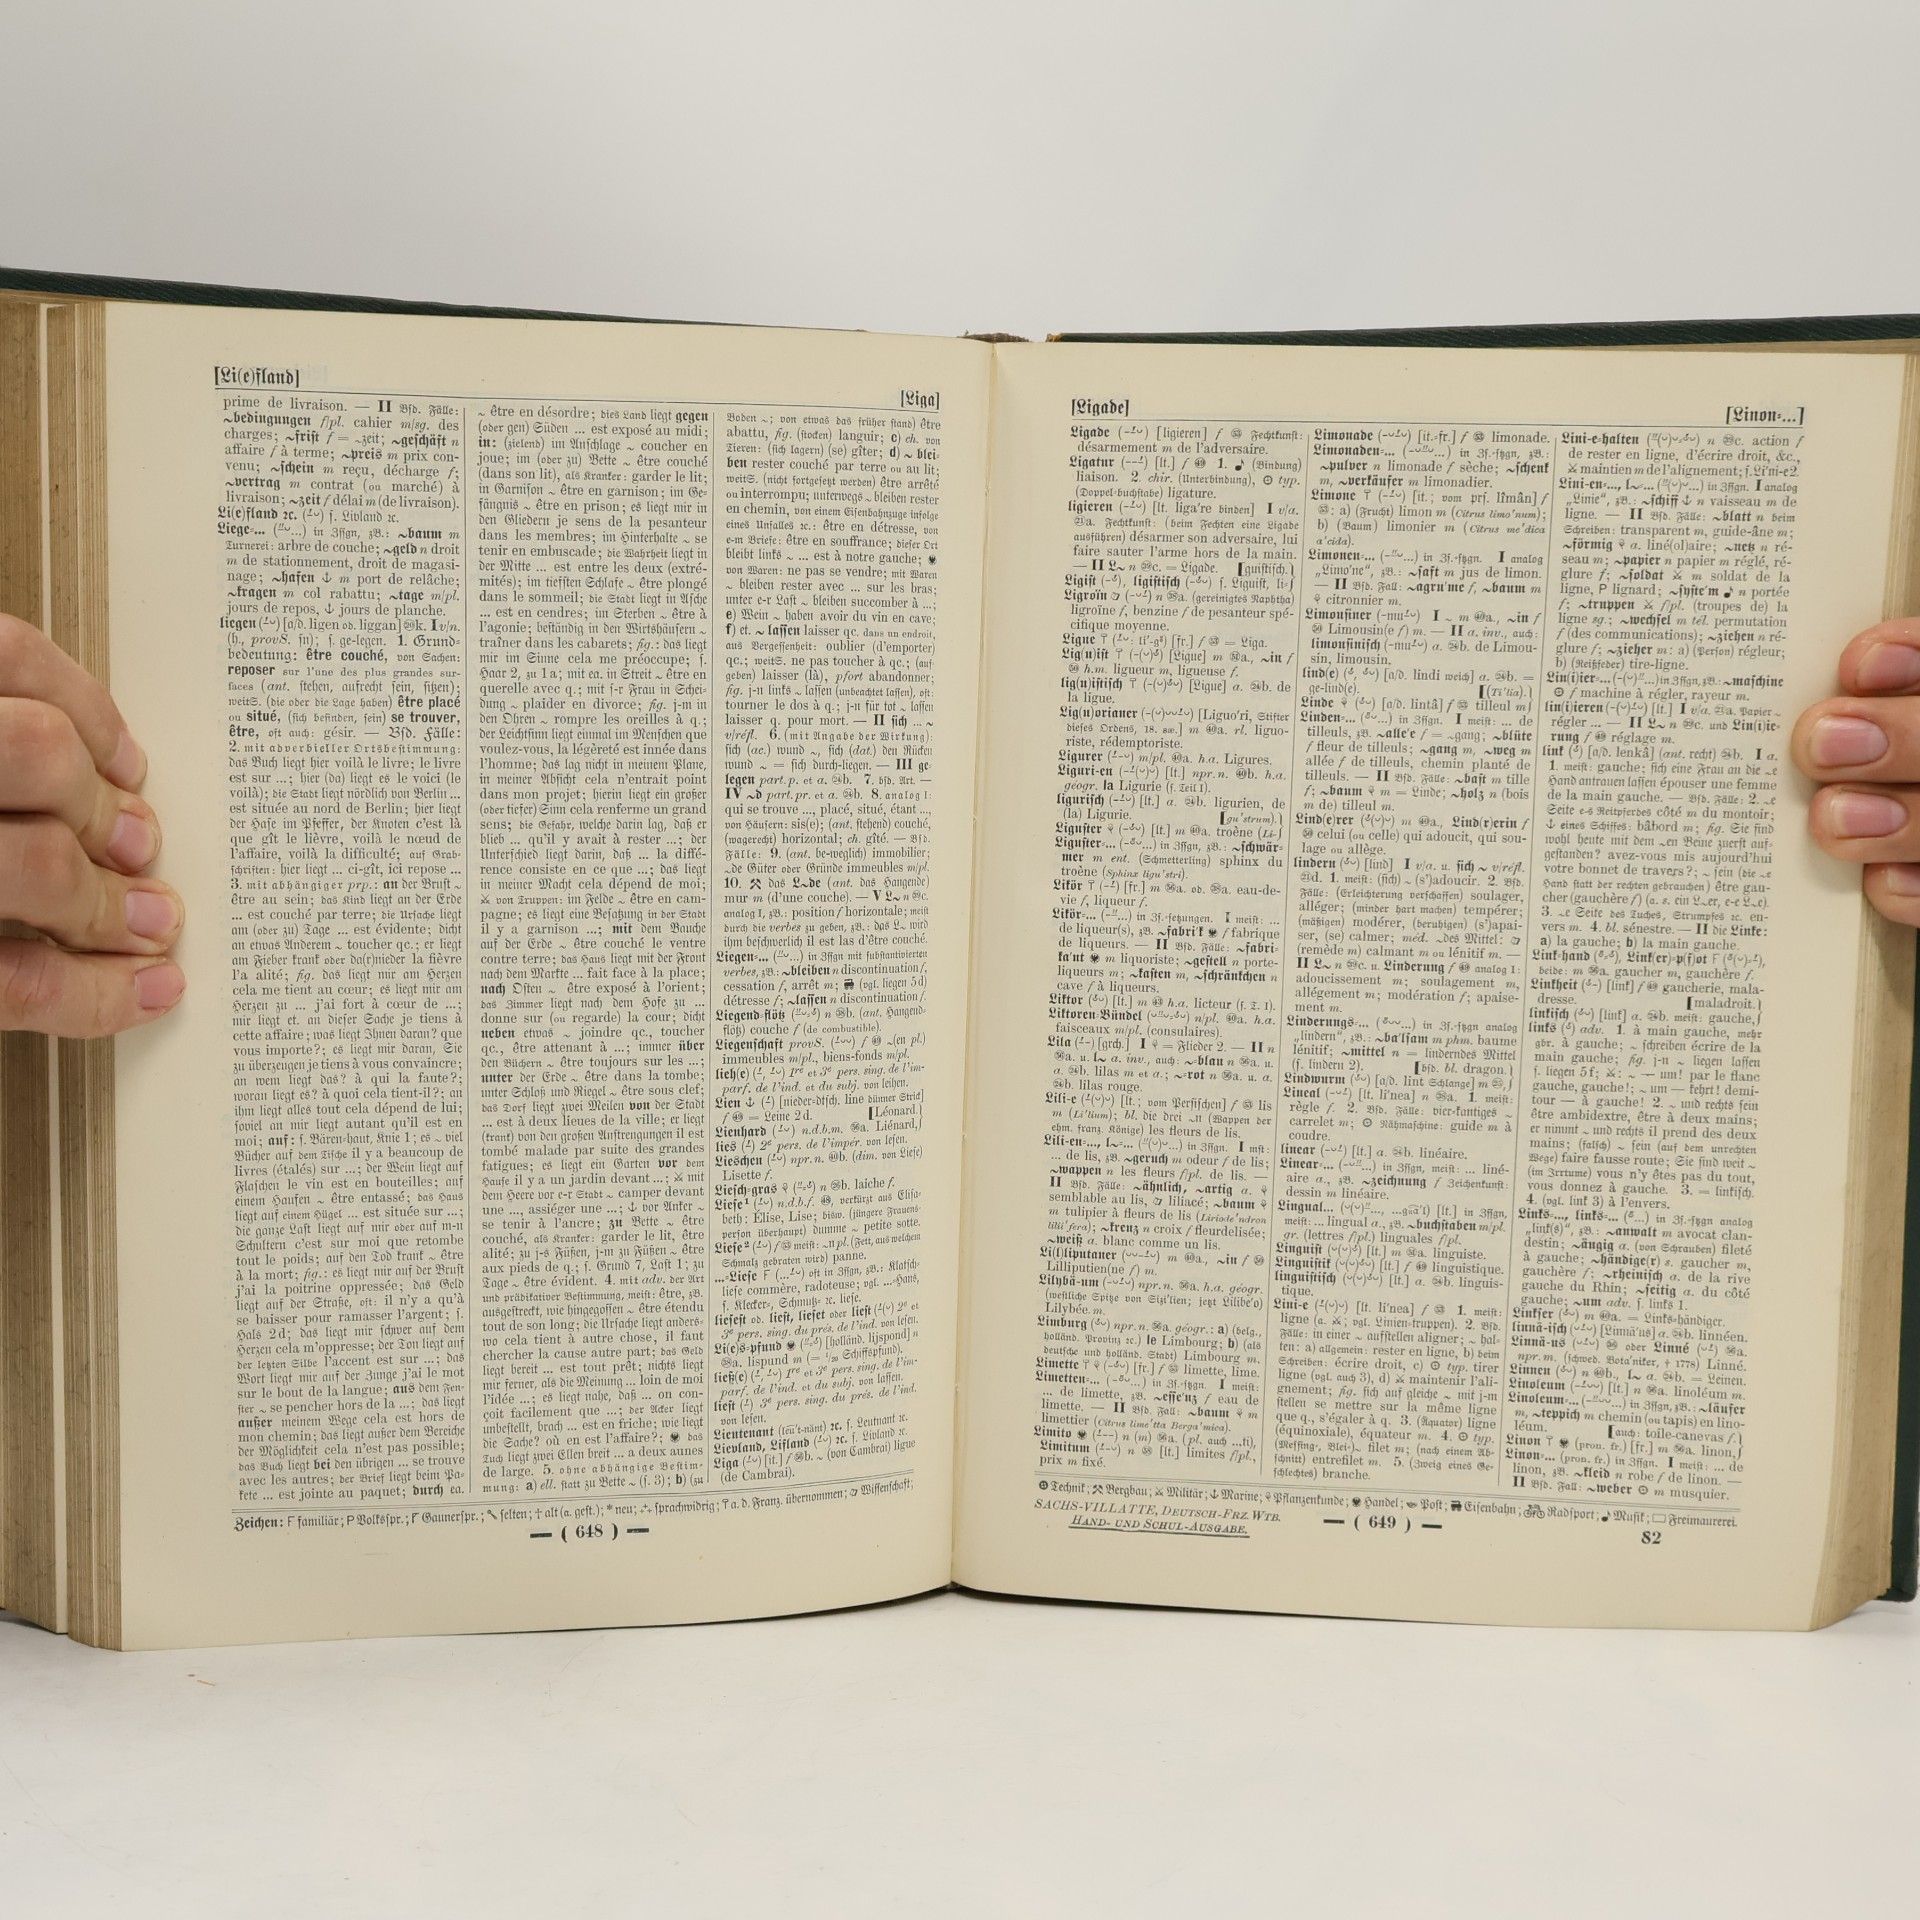 [Li(e)fland]
[Liga]
prime de livraison. — II Bsd. Fälle:
~bedingungen f/pl. cahier m/sg. des
charges; ~frist f = ~zeit; ~geschäft n
affaire f à terme; ~preis m prix con-
venu; ~schein m reçu, décharge f;
~vertrag m contrat (ou marché) à
livraison; ~zeit f délai m (de livraison).
Li(e)fland ꝛc. s. Livland ꝛc.
Liege-... in Zssgn, zB.: ~baum m
Turnerei: arbre de couche; ~geld n droit
m de stationnement, droit de magasi-
nage; ~hafen ⚓ m port de relâche;
~kragen m col rabattu; ~tage m/pl.
jours de repos, ⚓ jours de planche.
bedeutung: être couché, von Sachen:
reposer sur l'une des plus grandes sur-
faces (ant. stehen, aufrecht sein, sitzen);
weitS. (die oder die Lage haben) être placé
ou situé, (sich befinden, sein) se trouver,
être, oft auch: gésir. — Bsd. Fälle:
2. mit adverbieller Ortsbestimmung:
das Buch liegt hier voilà le livre; le livre
est sur ...; hier (da) liegt es le voici (le
voilà); die Stadt liegt nördlich von Berlin ...
est située au nord de Berlin; hier liegt
der Hase im Pfeffer, der Knoten c'est là
que gît le lièvre, voilà le nœud de
l'affaire, voilà la difficulté; auf Grab-
schriften: hier liegt ... ci-gît, ici repose ...
3. mit abhängiger prp.: an der Brust ~
être au sein; das Kind liegt an der Erde
... est couché par terre; die Ursache liegt
am (oder zu) Tage ... est évidente; dicht
an etwas Anderem ~ toucher qc.; er liegt
am Fieber krank oder da(r)nieder la fièvre
l'a alité; fig. das liegt mir am Herzen
cela me tient au cœur; es liegt mir am
Herzen zu ... j'ai fort à cœur de ...;
mir liegt et. an dieser Sache je tiens à
cette affaire; was liegt Ihnen daran? que
vous importe?; es liegt mir daran, Sie
zu überzeugen je tiens à vous convaincre;
an wem liegt das? à qui la faute?;
woran liegt es? à quoi cela tient-il?; an
ihm liegt alles tout cela dépend de lui;
soviel an mir liegt autant qu'il est en
moi; auf: s. Bären-haut, Knie 1; es ~ viel
Bücher auf dem Tische il y a beaucoup de
livres (étalés) sur ...; der Wein liegt auf
Flaschen le vin est en bouteilles; auf
einem Haufen ~ être entassé; das Haus
liegt auf einem Hügel ... est située sur ...;
die ganze Last liegt auf mir oder auf m-n
Schultern c'est sur moi que retombe
tout le poids; auf den Tod krank ~ être
à la mort; fig.: es liegt mir auf der Brust
j'ai la poitrine oppressée; das Geld
liegt auf der Straße, oft: il n'y a qu'à
se baisser pour ramasser l'argent; s.
Hals 2d; das liegt mir schwer auf dem
Herzen cela m'oppresse; der Ton liegt auf
der letzten Silbe l'accent est sur ...; das
Wort liegt mir auf der Zunge j'ai le mot
sur le bout de la langue; aus dem Fen-
ster ~ se pencher hors de la ...; das liegt
außer meinem Wege cela est hors de
mon chemin; das liegt außer dem Bereiche
der Möglichkeit cela n'est pas possible;
das Buch liegt bei den übrigen ... se trouve
avec les autres; der Brief liegt beim Pa-
kete ... est jointe au paquet; durch ea.
~ être en désordre; dies Land liegt gegen
(oder gen) Süden ... est exposé au midi;
in: (zielend) im Anschlage ~ coucher en
joue; im (oder zu) Bette ~ être couché
(dans son lit), als Kranker: garder le lit;
in Garnison ~ être en garnison; im Ge-
fängnis ~ être en prison; es liegt mir in
den Gliedern je sens de la pesanteur
dans les membres; im Hinterhalte ~ se
tenir en embuscade; die Wahrheit liegt in
der Mitte ... est entre les deux (extré-
mités); im tiefsten Schlafe ~ être plongé
dans le sommeil; die Stadt liegt in Asche
... est en cendres; im Sterben ~ être à
l'agonie; beständig in den Wirtshäusern ~
traîner dans les cabarets; fig.: das liegt
mir im Sinne cela me préoccupe; s.
Haar 2, zu 1a; mit ea. in Streit ~ être en
querelle avec q.; mit s-r Frau in Schei-
dung ~ plaider en divorce; fig. j-m in
den Ohren ~ rompre les oreilles à q.;
der Leichtsinn liegt einmal im Menschen que
voulez-vous, la légèreté est innée dans
l'homme; das lag nicht in meinem Plane,
in meiner Absicht cela n'entrait point
dans mon projet; hierin liegt ein großer
(oder tiefer) Sinn cela renferme un grand
sens; die Gefahr, welche darin lag, daß er
blieb ... qu'il y avait à rester ...; der
Unterschied liegt darin, daß ... la diffé-
rence consiste en ce que ...; das liegt
in meiner Macht cela dépend de moi;
⚔ von Truppen: im Felde ~ être en cam-
pagne; es liegt eine Besatzung in der Stadt
il y a garnison ...; mit dem Bauche
auf der Erde ~ être couché le ventre
contre terre; das Haus liegt mit der Front
nach dem Markte ... fait face à la place;
nach Osten ~ être exposé à l'orient;
das Zimmer liegt nach dem Hofe zu ...
donne sur (ou regarde) la cour; dicht
neben etwas ~ joindre qc., toucher
qc., être attenant à ...; immer über
den Büchern ~ être toujours sur les ...;
unter der Erde ~ être dans la tombe;
unter Schloß und Riegel ~ être sous clef;
das Dorf liegt zwei Meilen von der Stadt
... est à deux lieues de la ville; er liegt
(krank) von den großen Anstrengungen il est
tombé malade par suite des grandes
fatigues; es liegt ein Garten vor dem
Hause il y a un jardin devant ...; ⚔ mit
dem Heere vor e-r Stadt ~ camper devant
une ..., assiéger une ...; ⚓ vor Anker ~
se tenir à l'ancre; zu Bette ~ être
couché, als Kranker: garder le lit, être
alité; zu j-s Füßen, j-m zu Füßen ~ être
aux pieds de q.; s. Grund 7, Last 1; zu
Tage ~ être évident. 4. mit adv. der Art
und prädikativer Bestimmung, meist: être, zB.
ausgestreckt, wie hingegossen ~ être étendu
tout de son long; die Ursache liegt anders-
wo cela tient à autre chose, il faut
chercher la cause autre part; das Geld
liegt bereit ... est tout prêt; nichts liegt
mir ferner, als die Meinung ... loin de moi
l'idée ...; es liegt nahe, daß ... on con-
çoit facilement que ...; der Acker liegt
unbestellt, brach ... est en friche; wie liegt
die Sache? où en est l'affaire?; das
Tuch liegt zwei Ellen breit ... a deux aunes
de large. 5. ohne abhängige Bestim-
mung: a) ell. statt zu Bette ~ (s. 3); b) (zu
Boden ~; von etwas das früher stand) être
abattu, fig. (stocken) languir; c) ch. von
Tieren: (sich lagern) (se) gîter; d) ~ blei-
ben rester couché par terre ou au lit;
weitS. (nicht fortgesetzt werden) être arrêté
ou interrompu; unterwegs ~ bleiben rester
en chemin, von einem Eisenbahnzuge infolge
eines Unfalles ꝛc.: être en détresse, von
e-m Briefe: être en souffrance; dieser Ort
bleibt links ~ ... est à notre gauche;
von Waren: ne pas se vendre; mit Waren
~ bleiben rester avec ... sur les bras;
unter e-r Last ~ bleiben succomber à ...;
e) Wein ~ haben avoir du vin en cave;
f) et. ~ lassen laisser qc. dans un endroit,
aus Vergessenheit: oublier (d'emporter)
qc.; weitS. ne pas toucher à qc.; (auf-
geben) laisser (là), pfort abandonner;
fig. j-n links ~ lassen (unbeachtet lassen), oft:
tourner le dos à q.; j-n für tot ~ lassen
laisser q. pour mort. — II sich ... ~
v/réfl. 6. (mit Angabe der Wirkung):
sich (ac.) wund ~, sich (dat.) den Rücken
wund ~ = sich durch-liegen. — III ge-
legen part.p. et a. 7. bsd. Art. —
IV ~d part.pr. et a. 8. analog I:
qui se trouve ..., placé, situé, étant ...,
von Häusern: sis(e); (ant. stehend) couché,
(wagerecht) horizontal; ch. gîté. — Bsd.
Fälle: 9. (ant. be-weglich) immobilier;
~de Güter oder Gründe immeubles m/pl.
10. ⚒ das L~de (ant. das Hangende)
mur m (d'une couche). — V L~ n
analog I, zB.: position f horizontale; meist
durch die verbes zu geben, zB.: das L~ wird
ihm beschwerlich il est las d'être couché.
Liegen-... in Zssgn mit substantivierten
verbes, zB.: ~bleiben n discontinuation f,
cessation f, arrêt m; (vgl. liegen 5d)
détresse f; ~lassen n discontinuation f.
flötz) couche f (de combustible).
immeubles m/pl., biens-fonds m/pl.
parf. de l'ind. et du subj. von leihen.
[Léonard.}
Lisette f.
beth: Élise, Lise; bisw. (jüngere Frauens-
person überhaupt) dumme ~ petite sotte.
Schmalz gebraten wird) panne.
liese commère, radoteuse; vgl. ...-Hans,
s. Klecker-, Schmutz- ꝛc. liese.
3e pers. sing. du prés. de l'ind. von lesen.
parf. de l'ind. et du subj. von lassen.
von lesen.
(de Cambrai).
Zeichen: F familiär; P Volksspr.; Γ Gaunerspr.; selten; † alt (a. gest.); * neu; sprachwidrig; a. d. Franz. übernommen; Wissenschaft;
— ( 648 ) —
[Ligade]
[Linon-...]
Ligade [ligieren] f Fechtkunst:
désarmement m de l'adversaire.
liaison. 2. chir. (Unterbindung), typ.
(Doppel-buchstabe) ligature.
ligieren [lt. liga're binden] I v/a.
Fechtkunst: (beim Fechten eine Ligade
ausführen) désarmer son adversaire, lui
faire sauter l'arme hors de la main.
ligroïne f, benzine f de pesanteur spé-
cifique moyenne.
la ligue.
riste, rédemptoriste.
géogr. la Ligurie (s. Teil I).
(la) Ligurie. [gu'strum).}
mer m ent. (Schmetterling) sphinx du
troène (Sphinx ligu'stri).
vie f, liqueur f.
de liqueur(s), zB. ~fabri'k f fabrique
de liqueurs. — II Bsd. Fälle: ~fabri-
ka'nt m liquoriste; ~gestell n porte-
liqueurs m; ~kasten m, ~schränkchen n
cave f à liqueurs.
faisceaux m/pl. (consulaires).
lilas rouge.
m (Li'lium); bl. die drei ~n (Wappen der
ehm. franz. Könige) les fleurs de lis.
... de lis, zB. ~geruch m odeur f de lis;
~wappen n les fleurs f/pl. de lis. —
II Bsd. Fälle: ~ähnlich, ~artig a.
semblable au lis, liliacé; ~baum
m tulipier à fleurs de lis (Liriode'ndron
lilii'fera); ~kreuz n croix f fleurdelisée;
~weiß a. blanc comme un lis.
Lilliputien(ne f) m.
(westliche Spitze von Sizi'lien; jetzt Lilibe'o)
Lilybée m.
holländ. Provinz ꝛc.) le Limbourg; b) (als
deutsche und holländ. Stadt) Limbourg m.
... de limette, zB. ~esse'nz f eau de
limette. — II Bsd. Fall: ~baum m
limettier (Citrus lime'tta Berga'mica).
prix m fixé.
Limonade [it.-fr.] f limonade.
Limonaden-... in Zs.-ssgn, zB.:
~pulver n limonade f sèche; ~schenk
m, ~verkäufer m limonadier.
Limone [it.; vom prs. lîmân] f
: a) (Frucht) limon m (Citrus limo'num);
b) (Baum) limonier m (Citrus me'dica
a'cida).
Limonen-... in Zs.-ssgn. I analog
„Limo'ne“, zB.: ~saft m jus de limon.
— II Bsd. Fall: ~agru'me f, ~baum m
citronnier m.
Limousin(e f) m. — II a. inv., auch:
sin, limousin.
ge-lind(e). [(Ti'lia).}
Linden-... in Zssgn. I meist: ... de
tilleuls, zB. ~alle'e f = ~gang; ~blüte
f fleur de tilleuls; ~gang m, ~weg m
allée f de tilleuls, chemin planté de
tilleuls. — II Bsd. Fälle: ~bast m tille
f; ~baum m = Linde; ~holz n (bois
m de) tilleul m.
celui (ou celle) qui adoucit, qui sou-
lage ou allège.
Fälle: (Erleichterung verschaffen) soulager,
alléger; (minder hart machen) tempérer;
(mäßigen) modérer, (beruhigen) (s')apai-
ser, (se) calmer; méd. ~des Mittel:
(remède m) calmant m ou lénitif m. —
adoucissement m; soulagement m,
allégement m; modération f; apaise-
ment m.
Linderungs-... in Zs.-ssgn analog
„lindern“, zB.: ~ba'lsam m phm. baume
lénitif; ~mittel n = linderndes Mittel
(s. lindern 2). [bsd. bl. dragon.}
règle f. 2. Bsd. Fälle: vier-kantiges ~
carrelet m; Nähmaschine: guide m à
coudre.
linear [lt.] a. linéaire.
Linear-... in Zssgn, meist: ... liné-
aire a., zB. ~zeichnung f Zeichenkunst:
dessin m linéaire.
meist: ... lingual a., zB. ~buchstaben m/pl.
gr. (lettres f/pl.) linguales f/pl.
Linguist [lt.] m linguiste.
Linguistik [lt.] f linguistique.
tique.
ligne (a. ⚔; vgl. Linien-truppen). 2. Bsd.
Fälle: in einer ~ aufstellen aligner; ~ hal-
ten: a) allgemein: rester en ligne, b) beim
Schreiben: écrire droit, c) typ. tirer
ligne (vgl. auch 3), d) ⚔ maintenir l'ali-
gnement; fig. sich auf gleiche ~ mit j-m
stellen se mettre sur la même ligne
que q., s'égaler à q. 3. (Äquator) ligne
(équinoxiale), équateur m. 4. typ.
(Messing-, Blei-)~ filet m; (nach einem Ab-
schnitt) entrefilet m. 5. (Zweig eines Ge-
schlechtes) branche.
Lini-e-halten n c. action f
de rester en ligne, d'écrire droit, &c.,
⚔ maintien m de l'alignement; s. Li'ni-e 2.
„Linie“, zB.: ~schiff ⚓ n vaisseau m de
ligne. — II Bsd. Fälle: ~blatt n beim
Schreiben: transparent m, guide-âne m;
~förmig a. liné(ol)aire; ~netz n ré-
seau m; ~papier n papier m réglé, ré-
glure f; ~soldat ⚔ m soldat de la
ligne, P lignard; ~syste'm ♪ n portée
f; ~truppen ⚔ f/pl. (troupes de) la
ligne sg.; ~wechsel m tél. permutation
f (des communications); ~ziehen n ré-
glure f; ~zieher m: a) (Person) régleur;
b) (Reißfeder) tire-ligne.
f machine à régler, rayeur m.
rung f réglage m.
1. meist: gauche; sich eine Frau an die ~e
Hand antrauen lassen épouser une femme
de la main gauche. — Bsd. Fälle: 2. ~e
Seite e-s Reitpferdes côté m du montoir;
⚓ eines Schiffes: bâbord m; fig. Sie sind
wohl heute mit dem ~en Beine zuerst auf-
gestanden? avez-vous mis aujourd'hui
votre bonnet de travers?; ~ sein (die ~e
Hand statt der rechten gebrauchen) être gau-
cher (gauchère f) (a. s. ein L~er, e-e L~e).
3. ~e Seite des Tuches, Strumpfes ꝛc. en-
vers m. 4. bl. sénestre. — II die Linke:
a) la gauche; b) la main gauche.
beide: m gaucher m, gauchère f.
dresse. [maladroit.}
links adv. 1. à main gauche, mehr
gbr. à gauche; ~ schreiben écrire de la
main gauche; fig. j-n ~ liegen lassen
s. liegen 5f; ⚔: ~ — um! par le flanc
gauche, gauche!; ~ um — kehrt! demi-
tour — à gauche! 2. ~ und rechts sein
être ambidextre, être à deux mains;
er nimmt ~ und rechts il prend des deux
mains; (falsch) ~ sein (auf dem unrechten
Wege) faire fausse route; Sie sind weit ~
(im Irrtume) vous n'y êtes pas du tout,
vous donnez à gauche. 3. = linkisch.
4. (vgl. link 3) à l'envers.
Links-..., links-... in Zs.-ssgn analog
„link(s)“, zB.: ~anwalt m avocat clan-
destin; ~gängig a. (von Schrauben) fileté
à gauche; ~händige(r) s. gaucher m,
gauchère f; ~rheinisch a. de la rive
gauche du Rhin; ~seitig a. du côté
gauche; ~um adv. s. links 1.
npr. m. (schwed. Bota'niker, † 1778) Linné.
m, ~teppich m chemin (ou tapis) en lino-
léum. [auch: toile-canevas f.}
linon, zB. ~kleid n robe f de linon. —
II Bsd. Fall: ~weber m musquier.
Technik; ⚒ Bergbau; ⚔ Militär; ⚓ Marine; Pflanzenkunde; Handel; Post; Eisenbahn; Radsport; ♪ Musik; Freimaurerei.
SACHS-VILLATTE, DEUTSCH-FRZ. WTB.
HAND- UND SCHUL-AUSGABE.
— ( 649 ) —
82